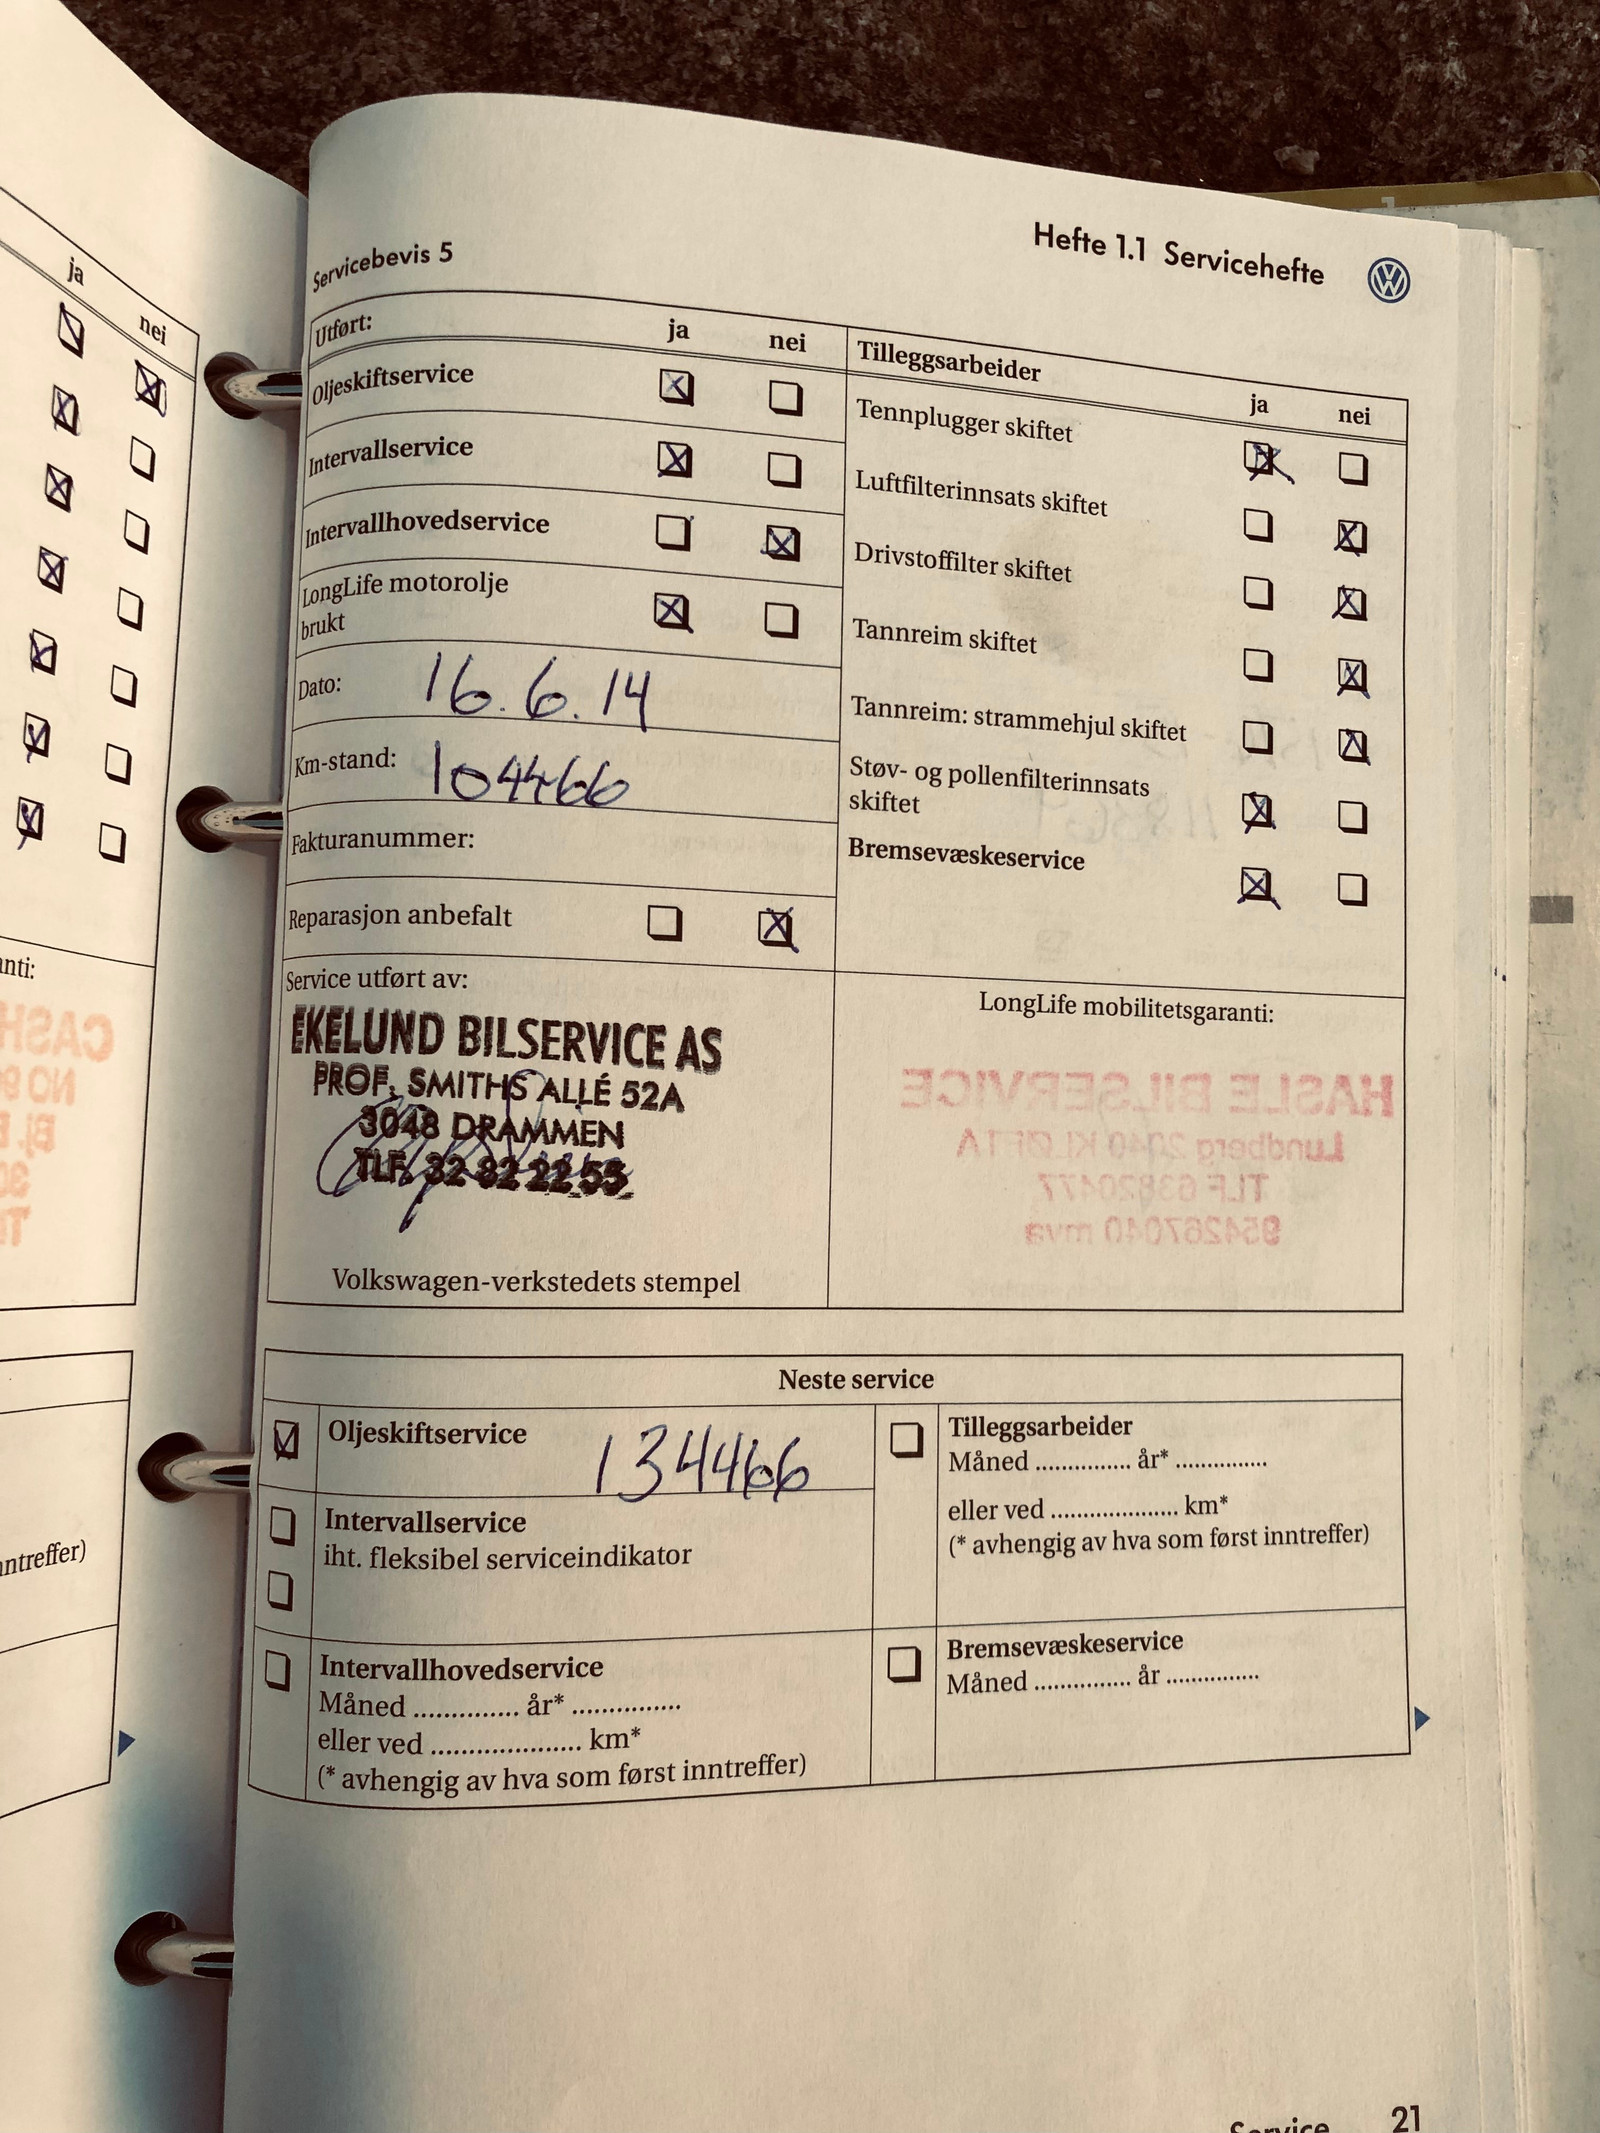 ja
nei
nti:
ntreffer)
Hefte 1.1 Servicehefte
Servicebevis 5
Utført: ja nei
Oljeskiftservice
Intervallservice
Intervallhovedservice
LongLife motorolje
brukt
Dato: 16.6.14
Km-stand: 104466
Fakturanummer:
Reparasjon anbefalt
Tilleggsarbeider
ja nei
Tennplugger skiftet
Luftfilterinnsats skiftet
Drivstoffilter skiftet
Tannreim skiftet
Tannreim: strammehjul skiftet
Støv- og pollenfilterinnsats
skiftet
Bremsevæskeservice
Service utført av:
EKELUND BILSERVICE AS
PROF. SMITHS ALLÉ 52A
3048 DRAMMEN
TLF. 32 82 22 55
Volkswagen-verkstedets stempel
LongLife mobilitetsgaranti:
HASLE BILSERVICE
Lundberg 2040 KLØFTA
TLF 63820477
954267040 mva
Neste service
Oljeskiftservice 134466
Intervallservice
iht. fleksibel serviceindikator
Intervallhovedservice
Måned .............. år* ...............
eller ved .................... km*
(* avhengig av hva som først inntreffer)
Tilleggsarbeider
Måned ............... år* ..............
eller ved .................... km*
(* avhengig av hva som først inntreffer)
Bremsevæskeservice
Måned ............... år ..............
Service 21